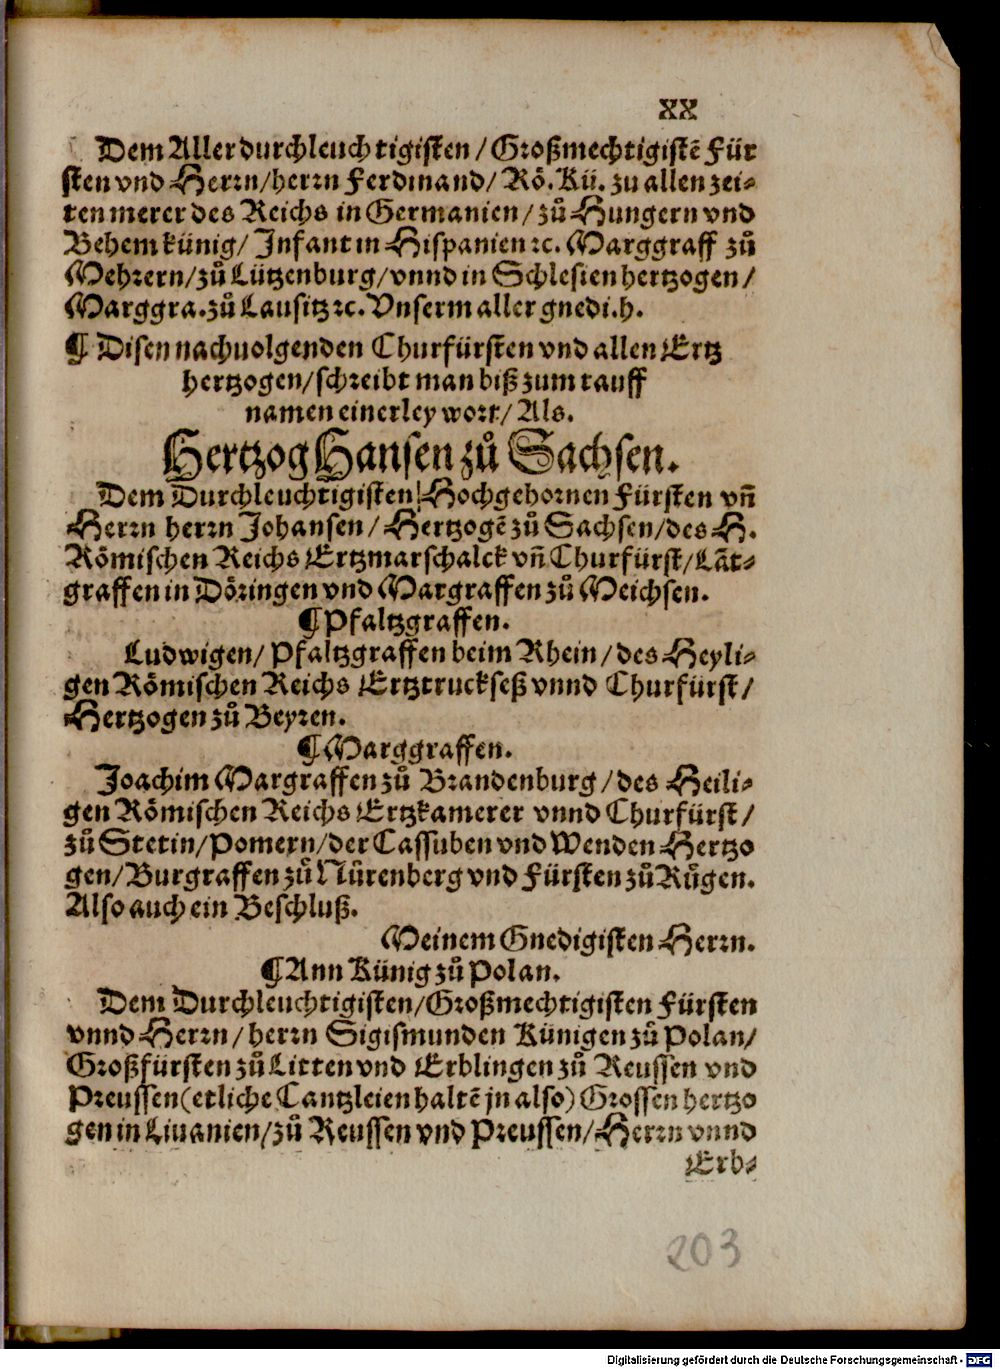 XX
Dem Allerdurchleuchtigisten / Großmechtigistē Für
sten vnd Herrn/herrn Ferdinand/ Rö. Kü. zu allen zei-
ten merer des Reichs in Germanien / zů Hungern vnd
Behem künig/ Infant in Hispanien ꝛc. Marggraff zů
Mehrern/zů Lützenburg/vnnd in Schlesien hertzogen/
Marggra.zů Lausitz ꝛc. Vnserm aller gnedi.h.
¶ Disen nachuolgenden Churfürsten vnd allen Ertz
hertzogen/schreibt man biß zum tauff
namen einerley wort/ Als.
Hertzog Hansen zů Sachsen.
Dem Durchleuchtigisten/Hochgebornen Fürsten vñ
Herrn herrn Johansen/ Hertzogē zů Sachsen/des H.
Römischen Reichs Ertzmarschalck vñ Churfürst/Lāt-
graffen in Döringen vnd Margraffen zů Meichsen.
¶Pfaltzgraffen.
Ludwigen/ Pfaltzgraffen beim Rhein/des Heyli-
gen Römischen Reichs Ertztruckseß vnnd Churfürst/
Hertzogen zů Beyren.
¶Marggraffen.
Joachim Margraffen zů Brandenburg/des Heili-
gen Römischen Reichs Ertzkamerer vnnd Churfürst/
zů Stetin/Pomern/der Cassuben vnd Wenden Hertzo
gen/Burgraffen zů Nürenberg vnd Fürsten zů Rügen.
Also auch ein Beschluß.
Meinem Gnedigisten Herrn.
¶Ann Künig zů Polan.
Dem Durchleuchtigisten/Großmechtigisten Fürsten
vnnd Herrn/ herrn Sigismunden Künigen zů Polan/
Großfürsten zů Litten vnd Erblingen zů Reussen vnd
Preussen(etliche Cantzleien haltē jn also) Grossen hertzo
gen in Liuanien/zů Reussen vnd Preussen/Herrn vnnd
Erb-
203
Digitalisierung gefördert durch die Deutsche Forschungsgemeinschaft - DFG